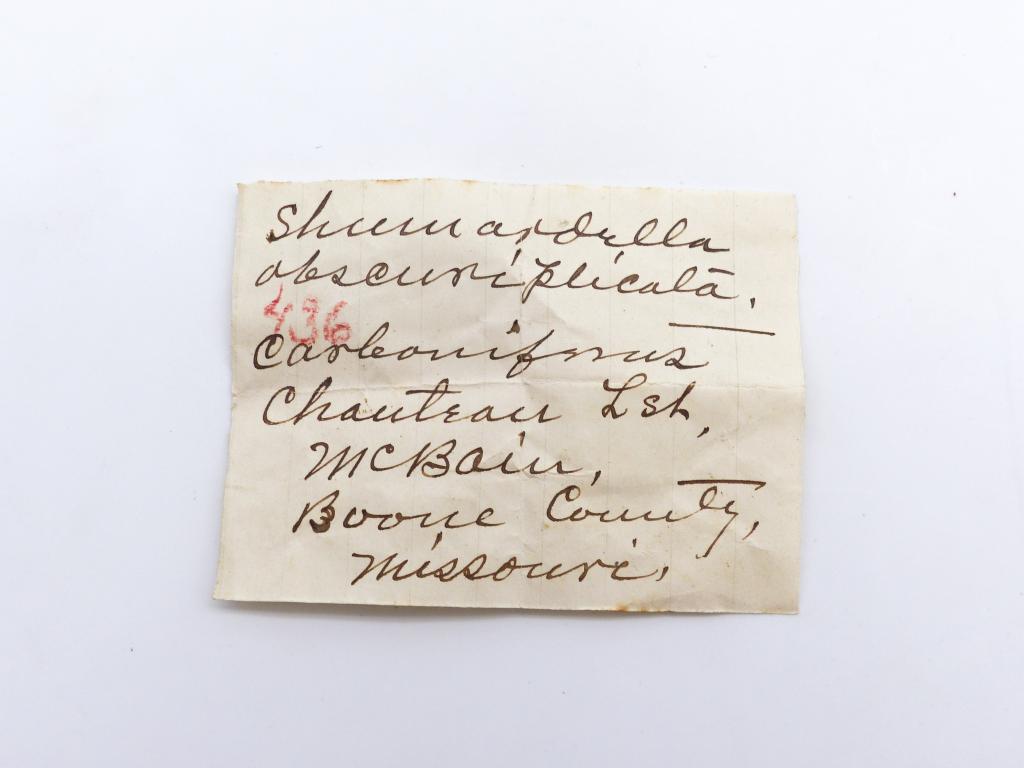 Shumardella
obscuriplicata.
436
Carboniferus
Chouteau Lst,
McBain,
Boone County,
Missouri.